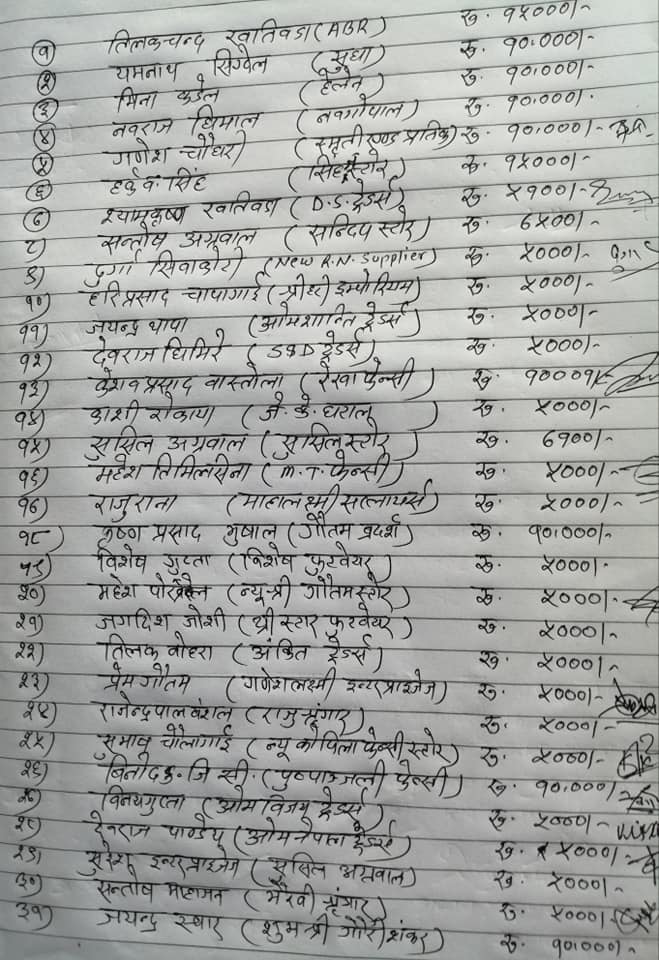 १ तिलकचन्द खतिवडा (ABR) रु. १५०००/-
२ यमनाथ सिग्देल (सुधा) रु. १०,०००/-
३ मिना कडेल (हेलेन) रु. १०,०००/-
४ नवराज धिमाल (नवगोपाल) रु. १०,०००/-
५ गणेश चौधरी (स्मृती एण्ड प्रतिक) रु. १०,०००/-
६ हर्क व. सिंह (सिंह स्टोर) रु. १५०००/-
७ श्यामकृष्ण खतिवडा (D.S. ट्रेडर्स) रु. ५१००/-
८) सन्तोष अग्रवाल (सन्दिप स्टोर) रु. ६५००/-
९) दुर्गा सिवाकोटी (New R.N. Supplier) रु. ५०००/-
१०) हरिप्रसाद चापागाई (श्रीहरी इम्पोरियम) रु. ५०००/-
११) जयन्द्र थापा (ओमशान्ति ट्रेडर्स) रु. ५०००/-
१२) देवराज घिमिरे (S&D ट्रेडर्स) रु. ५०००/-
१३) केशवप्रसाद वास्तोला (रेखा फेन्सी) रु. १०००१/-
१४) काशी रोकाया (जे. के. घरालु) रु. ५०००/-
१५) सुसिल अग्रवाल (सुसिल स्टोर) रु. ६१००/-
१६) महेश तिमिलसिना (M.T. फेन्सी) रु. ५०००/-
१७) राजु राना (माहालक्ष्मी सप्लायर्स) रु. ५०००/-
१८) कृष्ण प्रसाद भुषाल (गौतम प्रदर्श) रु. १०,०००/-
१९) विशेष गुप्ता (विशेष फुटवेयर) रु. ५०००/-
२०) महेश पोखरेल (न्यू-श्री गौतम स्टोर) रु. ५०००/-
२१) जगदिश जोशी (थ्री स्टार फुटवेयर) रु. ५०००/-
२२) तिलक वोहरा (अंकित ट्रेडर्स) रु. ५०००/-
२३) प्रेम गौतम (गणेशलक्ष्मी इन्टरप्राइजेज) रु. ५०००/-
२४) राजेन्द्रपाल वंशल (राजु श्रृंगार) रु. ५०००/-
२५) सुमाबु चौलागाई (न्यू कपिला फेन्सी स्टोर) रु. ५०००/-
२६) बिनोद कु. जि सी. (पुष्पाञ्जली फेन्सी) रु. १०,०००/-
२७) विनयगुप्ता (ओम विजय ट्रेडर्स) रु. ५०००/-
२८) देवराज पाण्डेय (ओम नेपाल ट्रेडर्स) रु. ५०००/-
२९) सुरेश इन्टरप्राइजेज (सुसिल अग्रवाल) रु. ५०००/-
३०) सन्तोष महाजन (भैरवी श्रृंगार) रु. ५०००/-
३१) जयन्द्र स्थार (शुभ-श्री गौरीशंकर) रु. १०,०००/-